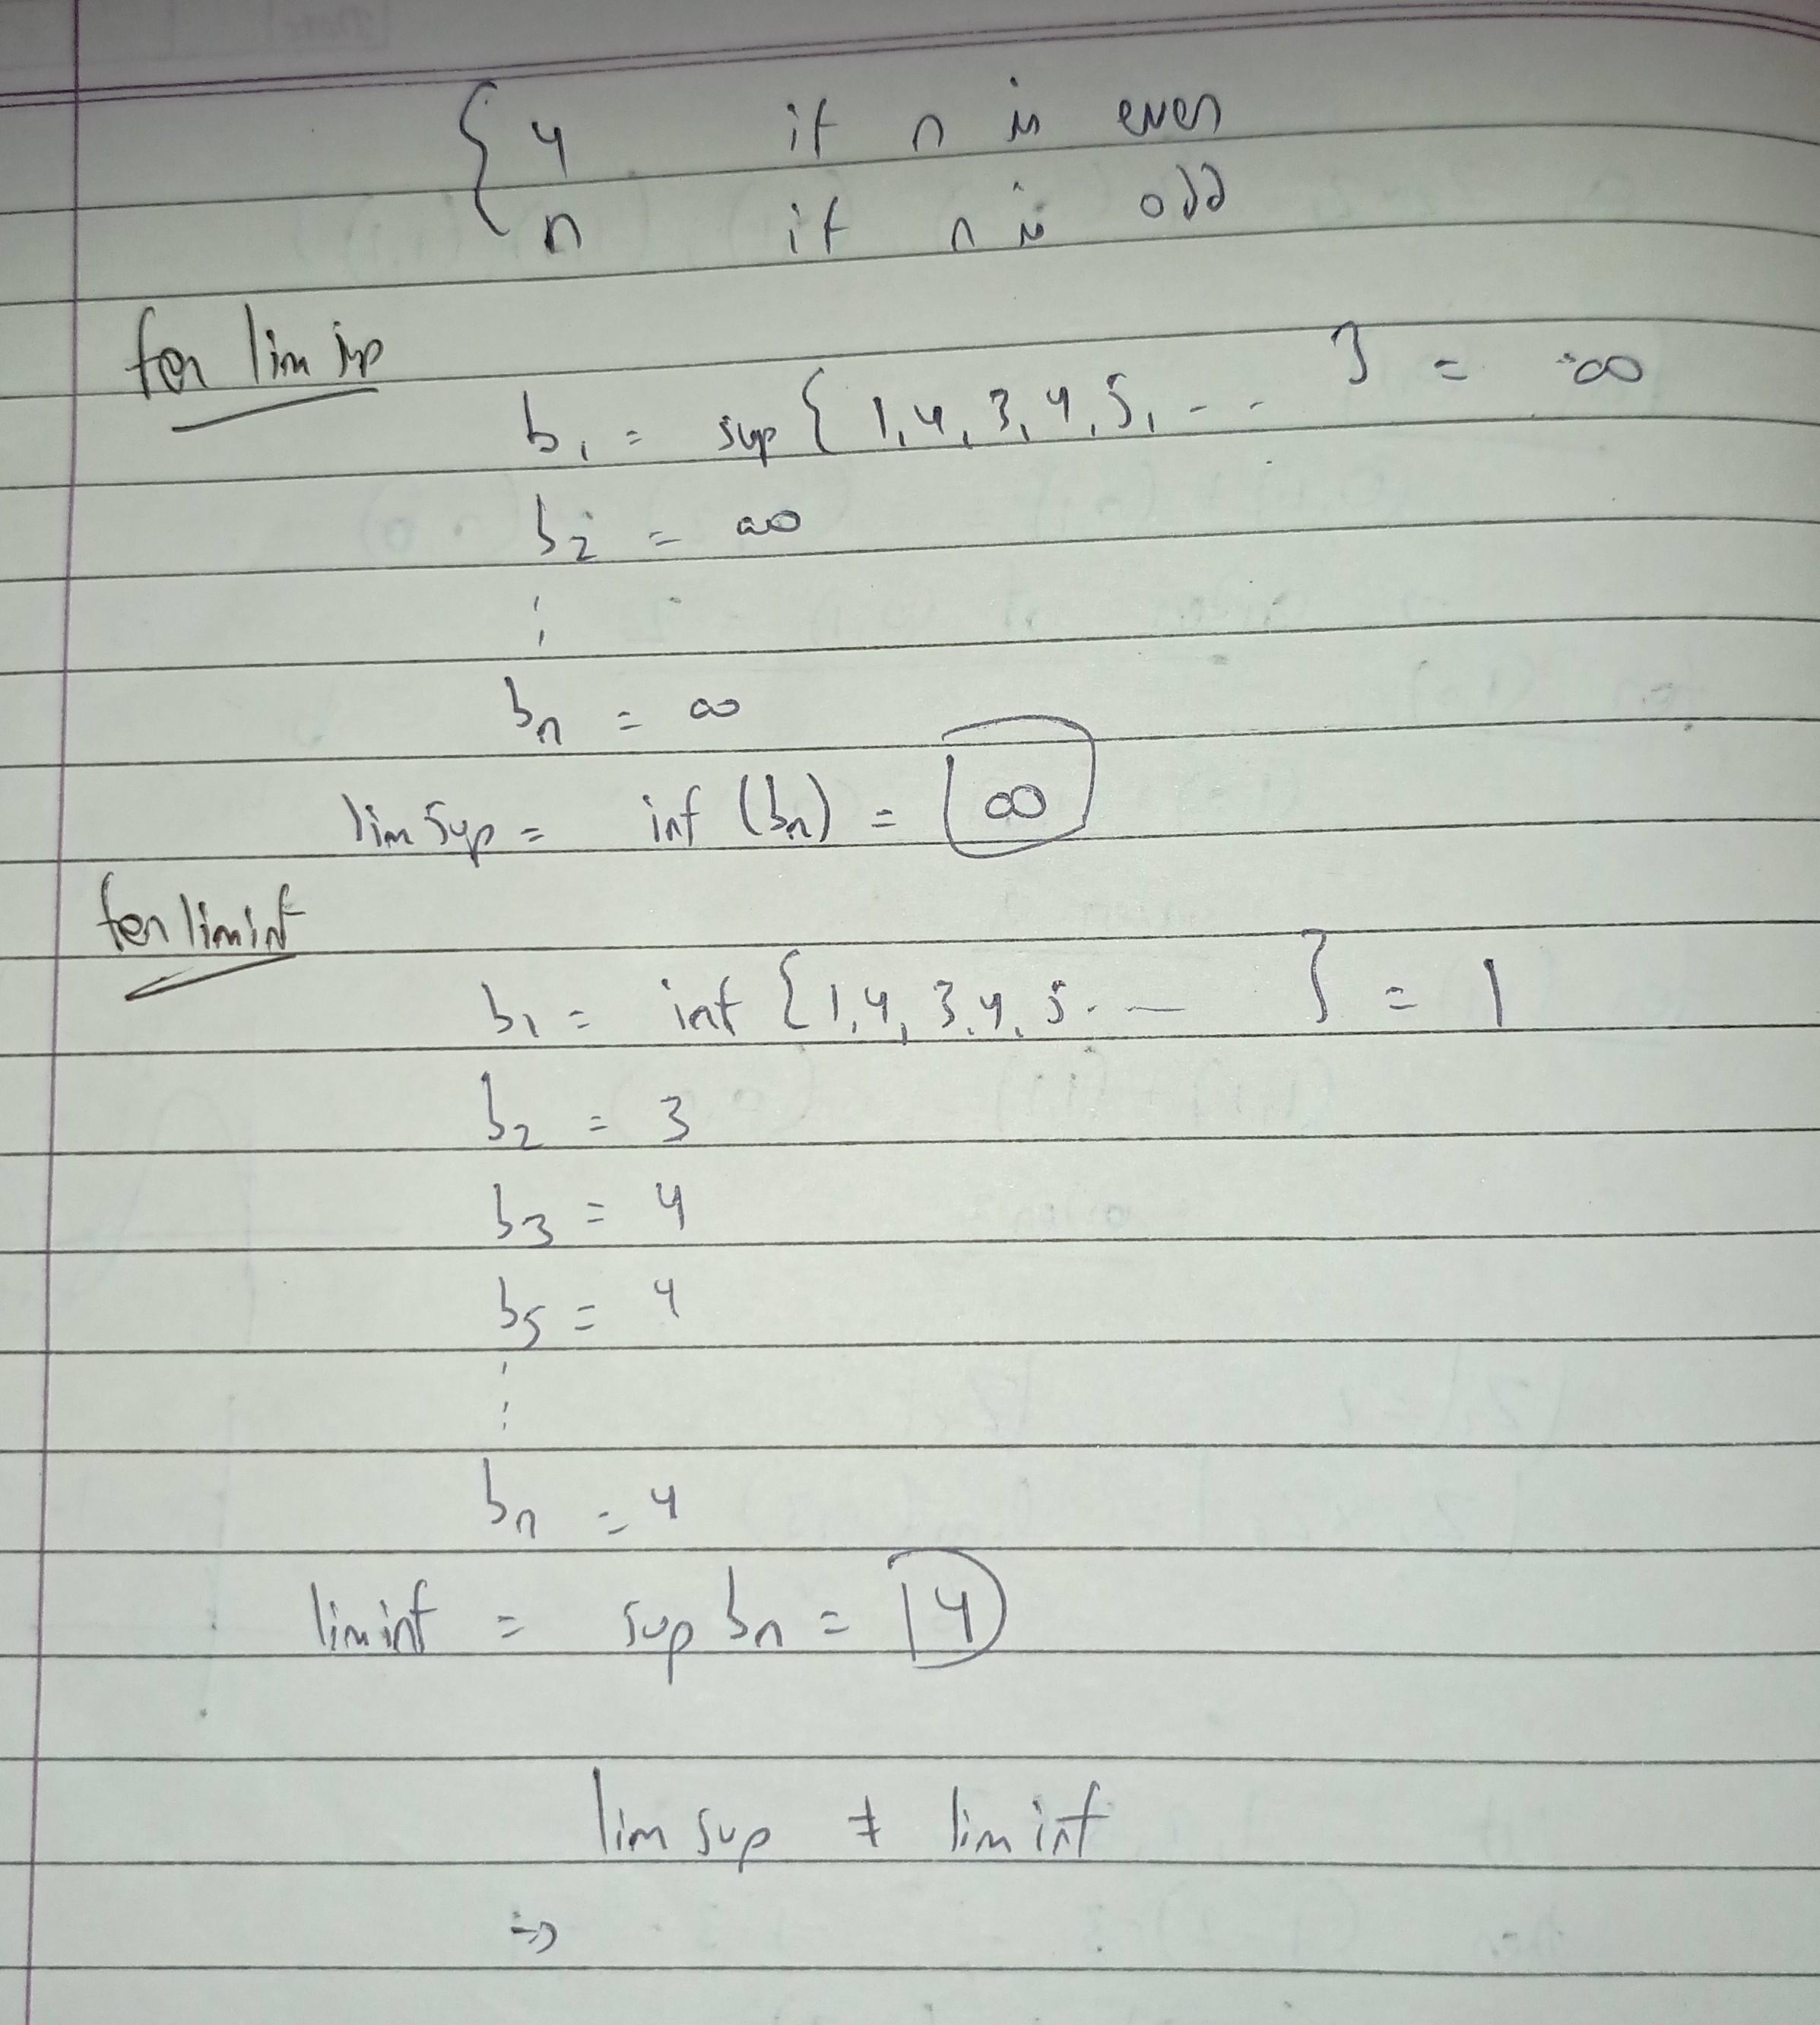 { 4 if n is even
n if n is odd
for lim sup
b₁ = sup { 1, 4, 3, 4, 5, - - } = ∞
b₂ = ∞
⋮
bₙ = ∞
lim sup = inf (bₙ) = ∞
for lim inf
b₁ = inf { 1, 4, 3, 4, 5 - — } = 1
b₂ = 3
b₃ = 4
b₅ = 4
⋮
bₙ = 4
lim inf = sup bₙ = 4
lim sup ≠ lim inf
⇒